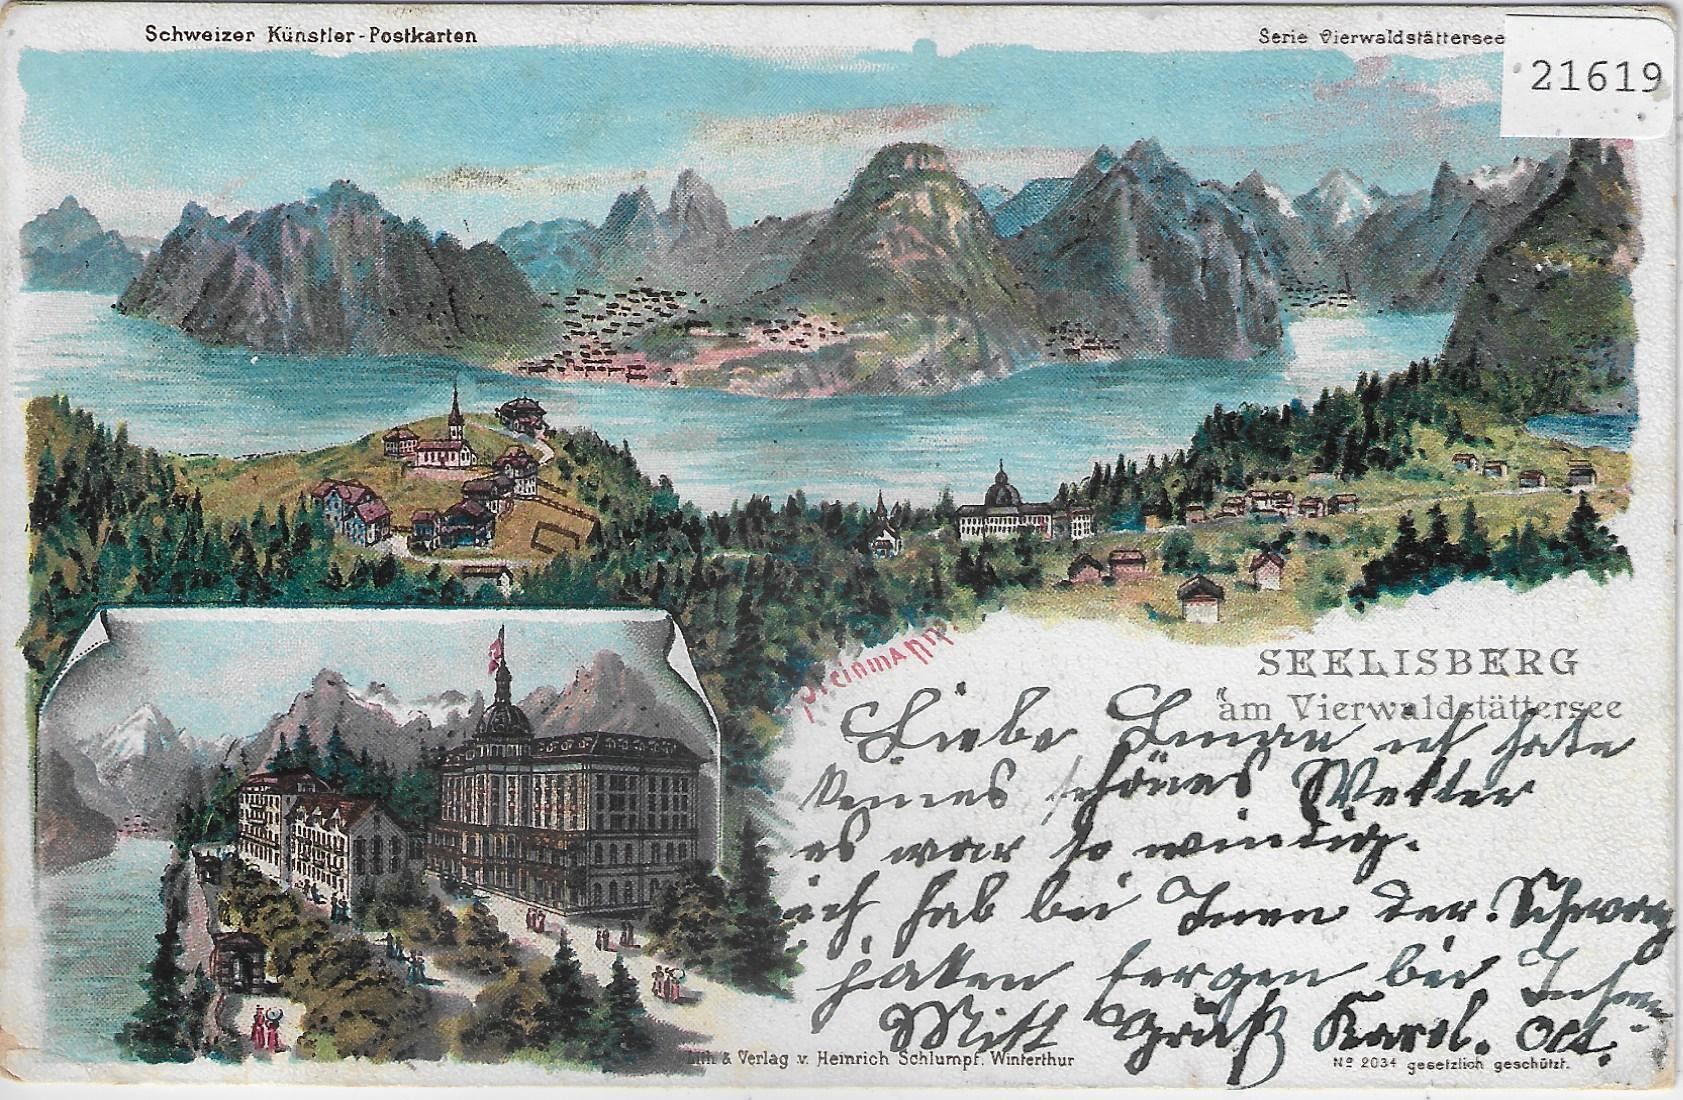 Schweizer Künstler-Postkarten
Serie Vierwaldstättersee
21619
Steinmann.
SEELISBERG
am Vierwaldstättersee
Liebe ich hate
keines schönes Wetter
es war so windig.
ich hab bei der Schwarz
bei
Mitt Gruß Karl. Ott.
Lith. & Verlag v. Heinrich Schlumpf. Winterthur
No 2034 gesetzlich geschützt.